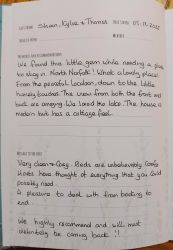 Shaun, Kylie & Thomas
05.11.2022
We found this little gem while needing a place
to stay in North Norfolk! What a lovely place!
From the peaceful location, down to the little
homely touches. The view from both the front and
back are amazing. We loved the lake. The house is
modern but has a cottage feel.
Very clean & Cosy. Beds are unbelievably Comfy
Hosts have thought of everything that you could
possibly need
A pleasure to deal with from booking to
end.
We highly recommend and will most
definitely be coming back !!